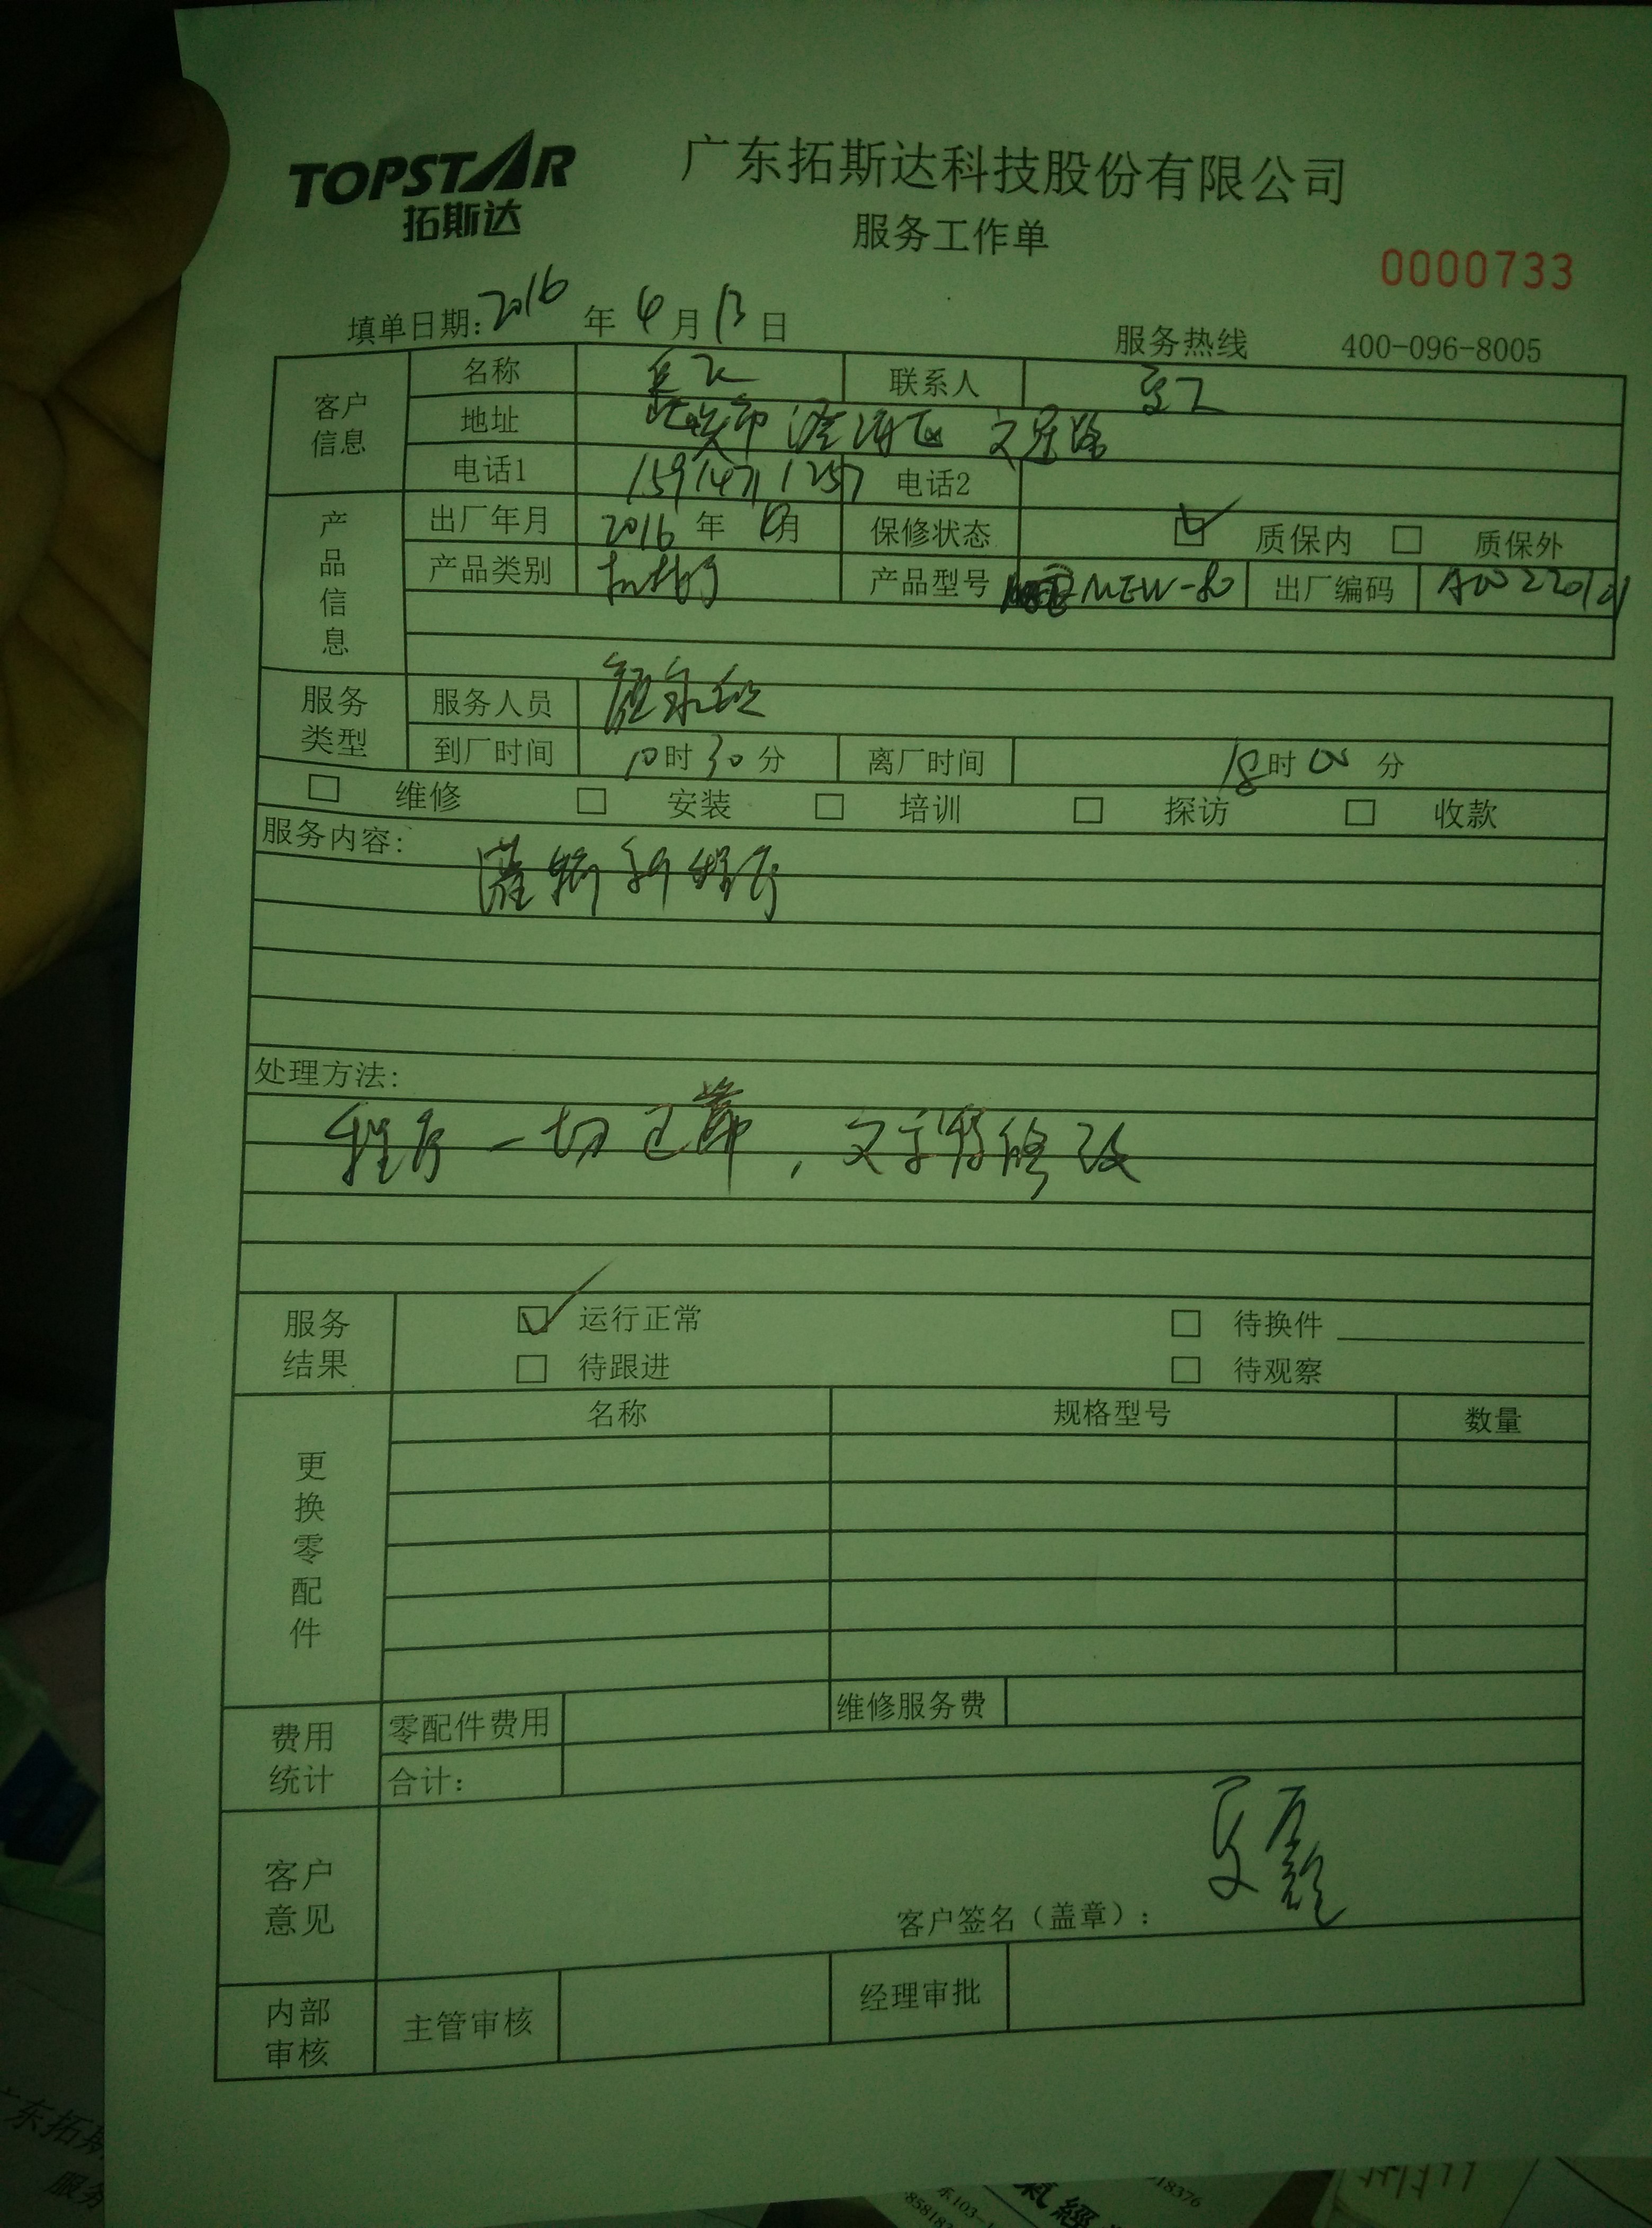 TOPSTAR
拓斯达
广东拓斯达科技股份有限公司
服务工作单
0000733
填单日期:2016 年 4 月 13 日
服务热线 400-096-8005
客户信息
名称 联系人
地址 市 区
电话1 15914711257 电话2
产品信息
出厂年月 2016 年 月 保修状态 ☑ 质保内 □ 质保外
产品类别 机械手 产品型号 MEW-80 出厂编码 A00220101
服务类型
服务人员
到厂时间 10时30分 离厂时间 18时00分
□ 维修 □ 安装 □ 培训 □ 探访 □ 收款
服务内容:
新程序
处理方法:
程序一切正常,文字 修改
服务结果
☑ 运行正常 □ 待换件
□ 待跟进 □ 待观察
更换零配件
名称 规格型号 数量
费用统计
零配件费用 维修服务费
合计:
客户意见
客户签名(盖章):
内部审核
主管审核 经理审批
广东拓斯
服务
18376
氣經
东103-